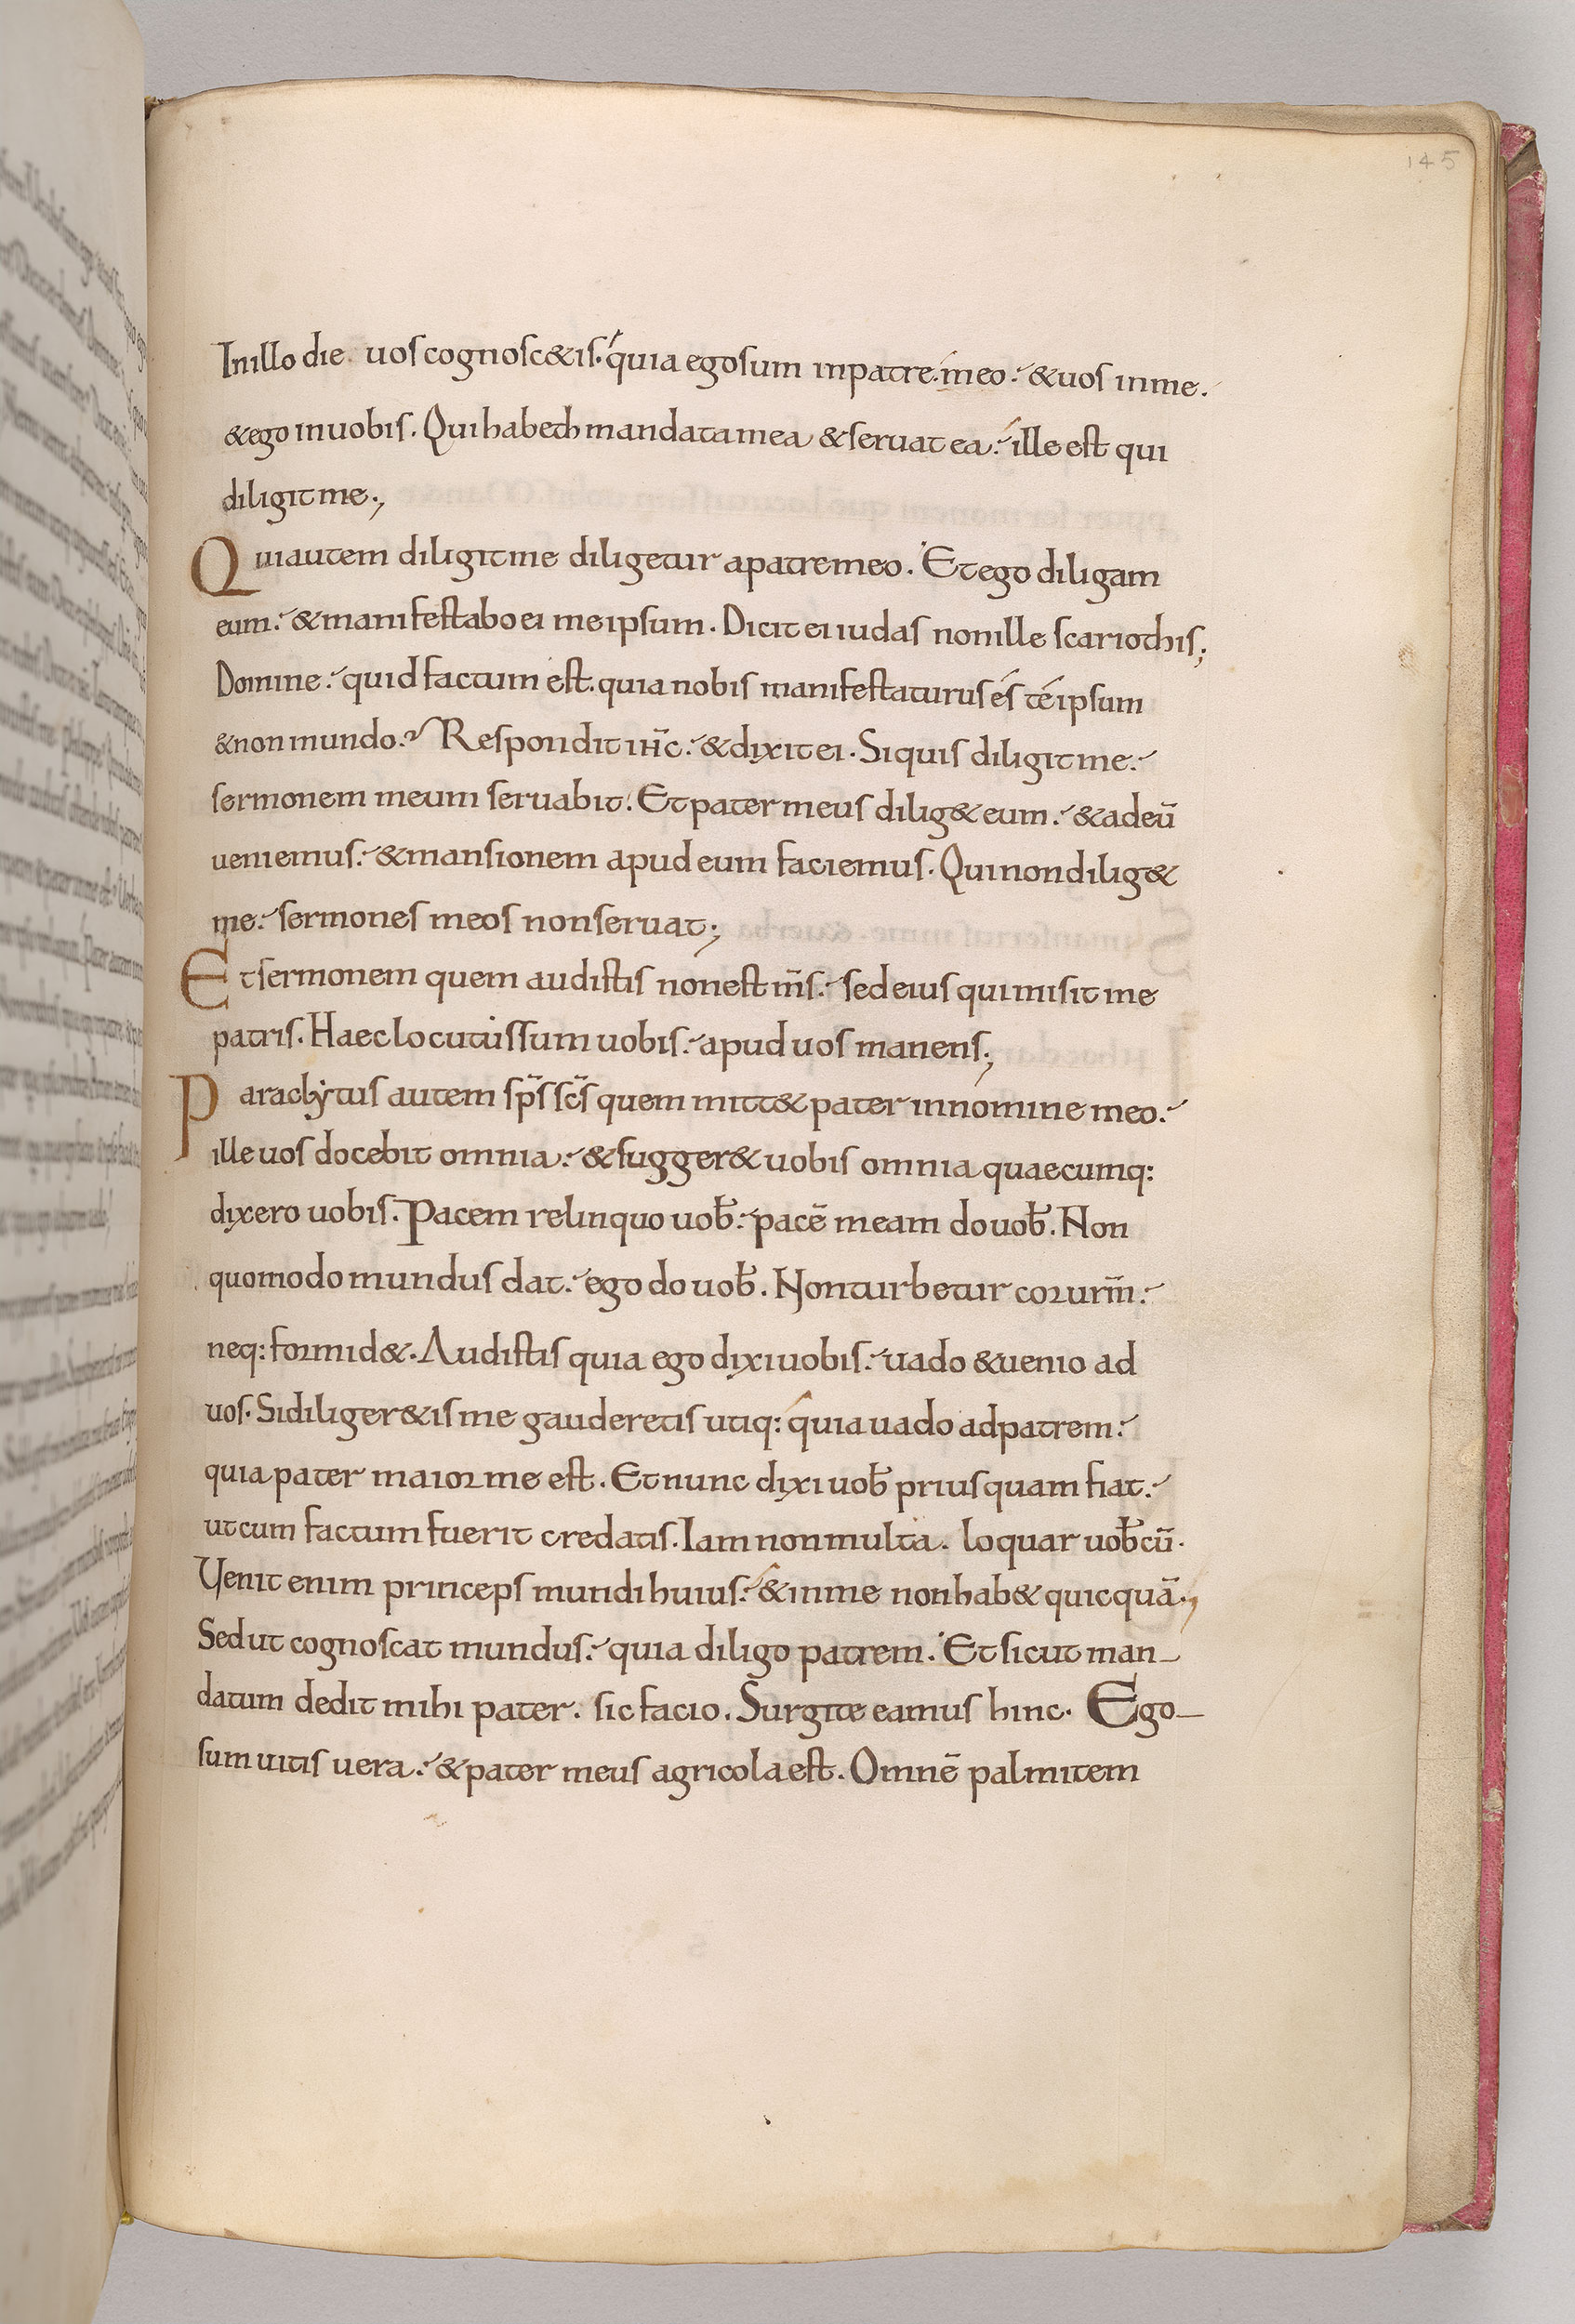 145
In illo die uos cognosc&is. quia ego sum in patre meo. & uos in me.
& ego in uobis. Qui hab& mandata mea & seruat ea. ille est qui
diligit me.,
Qui autem diligit me diligetur a patre meo. Et ego diligam
eum. & manifestabo ei me ipsum. Dicit ei iudas non ille scariothis;
Domine. quid factum est. quia nobis manifestaturus és té ipsum
& non mundo.? Respondit ih̄c. & dixit ei. Si quis diligit me.
sermonem meum seruabit. Et pater meus dilig& eum. & ad eū
ueniemus. & mansionem apud eum faciemus. Qui non dilig&
me. sermones meos non seruat;
Et sermonem quem audistis non est m̄s. sed eius qui misit me
patris. Haec locutus sum uobis. apud uos manens;
Paraclytus autem sp̄s sc̄s quem mitt& pater in nomine meo.
ille uos docebit omnia. & sugger& uobis omnia quaecumq:
dixero uobis. Pacem relinquo uob̄. pacē meam do uob̄. Non
quomodo mundus dat. ego do uob̄. Non turbetur cor urm̄.
neq: formid&. Audistis quia ego dixi uobis. uado & uenio ad
uos. Si diliger&is me gauderetis utiq: quia uado ad patrem.
quia pater maior me est. Et nunc dixi uob̄ priusquam fiat.
ut cum factum fuerit credatis. Iam non multa. loquar uob̄cū.
Uenit enim princeps mundi huius. & in me non hab& quicquā.,
Sed ut cognoscat mundus. quia diligo patrem. Et sicut man-
datum dedit mihi pater. sic facio. Surgite eamus hinc. Ego
sum uitis uera. & pater meus agricola est. Omnē palmitem